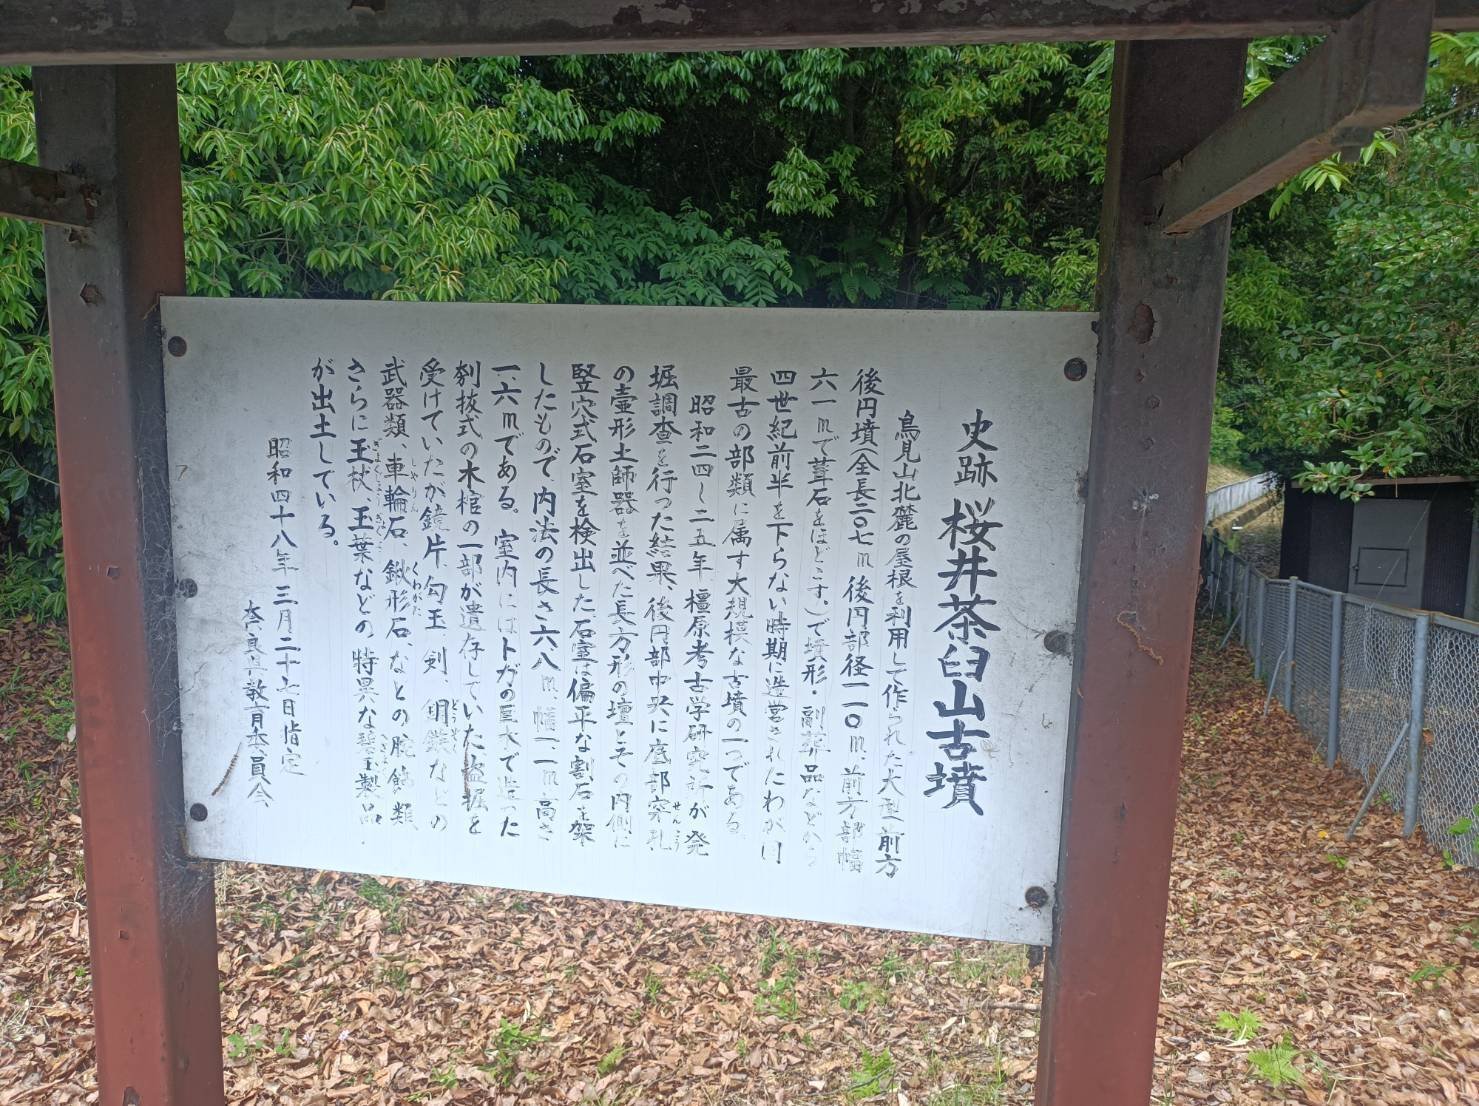 史跡 桜井茶臼山古墳
鳥見山北麓の屋根を利用して作られた大型前方
後円墳(全長二〇七m 後円部径一一〇m 前方部幅
六一mで葺石をほどこす。)で墳形・副葬品などから
四世紀前半を下らない時期に造営されたわが国
最古の部類に属す大規模な古墳の一つである。
昭和二四〜二五年橿原考古学研究所が発
堀調査を行った結果、後円部中央に底部穿孔
せんこう
の壷形土師器を並べた長方形の壇とその内側に
竪穴式石室を検出した石室は偏平な割石を架
したもので、内法の長さ六・八m、幅一・一m、高さ
一・六mである。室内にはトガの巨木で造った
刳抜式の木棺の一部が遺存していた盗堀を
受けていたが鏡片、勾玉、剣、銅鏃などの
どうぞく
武器類、車輪石、鍬形石、などの腕飾類、
しゃりん くわがた
さらに玉杖、玉葉などの特異な碧玉製品
が出土している。
昭和四十八年三月二十七日指定
奈良県教育委員会